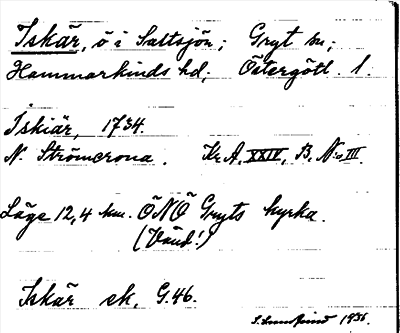 Iskär, ö i Saltsjön; Gryt sn;
Hammarkinds hd; Östergötl. l.
Iskiär, 1734.
N. Strömcrona. Kr.A. XXIV, B, N:o III.
Läge 12,4 km. ÖNÖ Gryts kyrka.
(Vänd!)
Iskär ek. G.46.
1936.